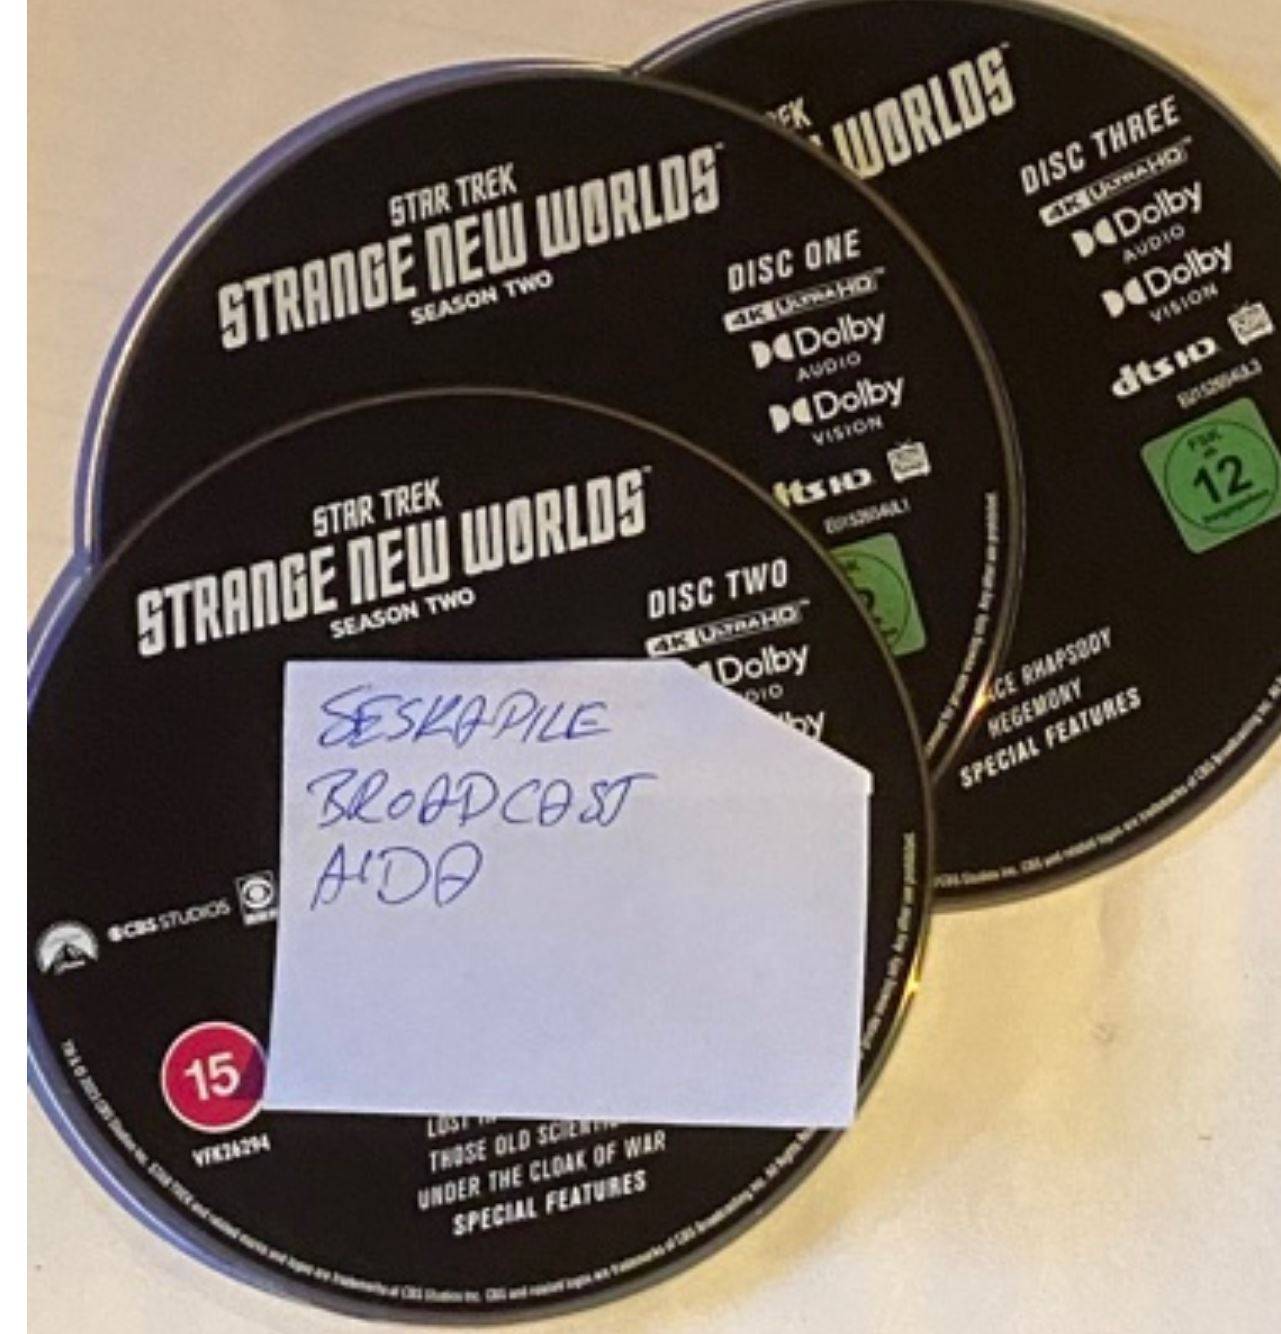 STAR TREK
STRANGE NEW WORLDS
SEASON TWO
DISC ONE
4K ULTRA HD
Dolby
AUDIO
Dolby
VISION
dts HD
EU152604UL1
WORLDS
DISC THREE
4K ULTRA HD
Dolby
AUDIO
Dolby
VISION
dts HD
EU152604UL3
FSK
ab
12
HEGEMONY
SPECIAL FEATURES
STAR TREK
STRANGE NEW WORLDS
SEASON TWO
DISC TWO
4K ULTRA HD
Dolby
SESKAPILE
BROADCAST
AIDA
CBS STUDIOS
15
VFK26294
LOST
THOSE OLD
UNDER THE CLOAK OF WAR
SPECIAL FEATURES